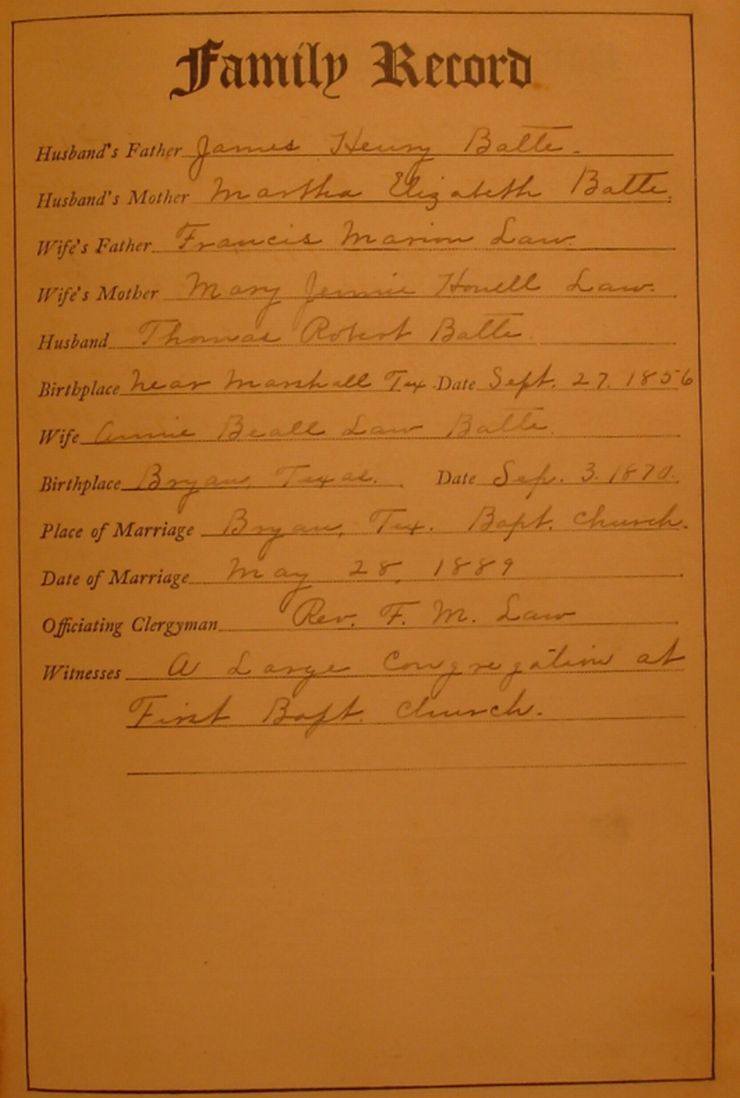 Family Record
Husband's Father James Henry Batte.
Husband's Mother Martha Elizabeth Batte.
Wife's Father Francis Marion Law.
Wife's Mother Mary Jennie Howell Law.
Husband Thomas Robert Batte.
Birthplace near Marshall Tex. Date Sept. 27. 1856
Wife Annie Beall Law Batte.
Birthplace Bryan, Texas. Date Sep. 3. 1870.
Place of Marriage Bryan, Tex. Bapt. Church.
Date of Marriage May 28, 1889
Officiating Clergyman Rev. F. M. Law
Witnesses A Large Congregation at
First Bapt. Church.